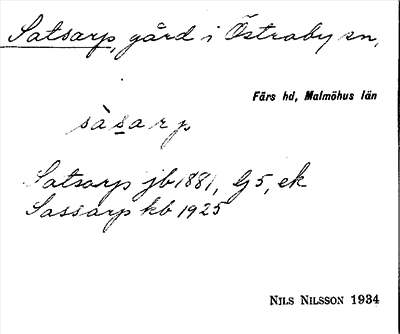 Satsarp, gård i Östraby sn,
Färs hd, Malmöhus län
sàsarp
Satsarp jb 1881, Ej 5, ek
Sassarp kb 1925
NILS NILSSON 1934